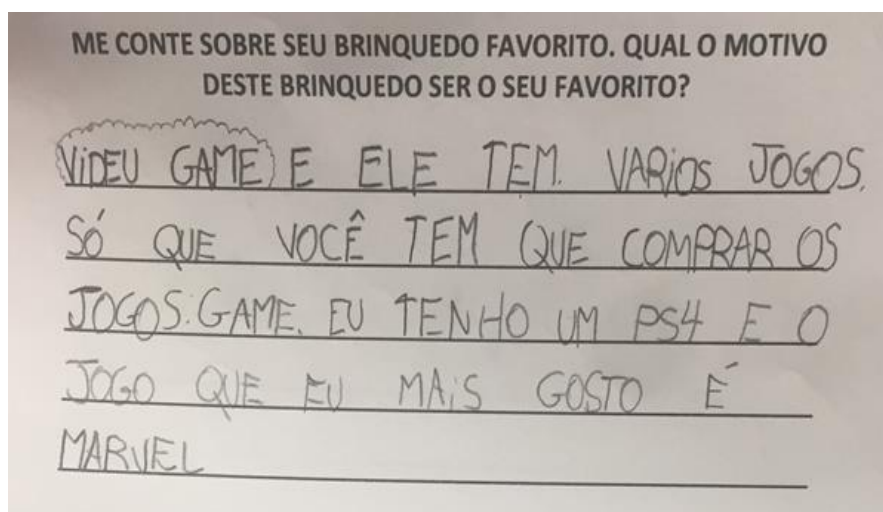 ME CONTE SOBRE SEU BRINQUEDO FAVORITO. QUAL O MOTIVO
DESTE BRINQUEDO SER O SEU FAVORITO?
VIDEU GAME E ELE TEM. VARIOS JOGOS.
SÓ QUE VOCÊ TEM QUE COMPRAR OS
JOGOS.GAME. EU TENHO UM PS4 E O
JOGO QUE EU MAIS GOSTO É
MARVEL